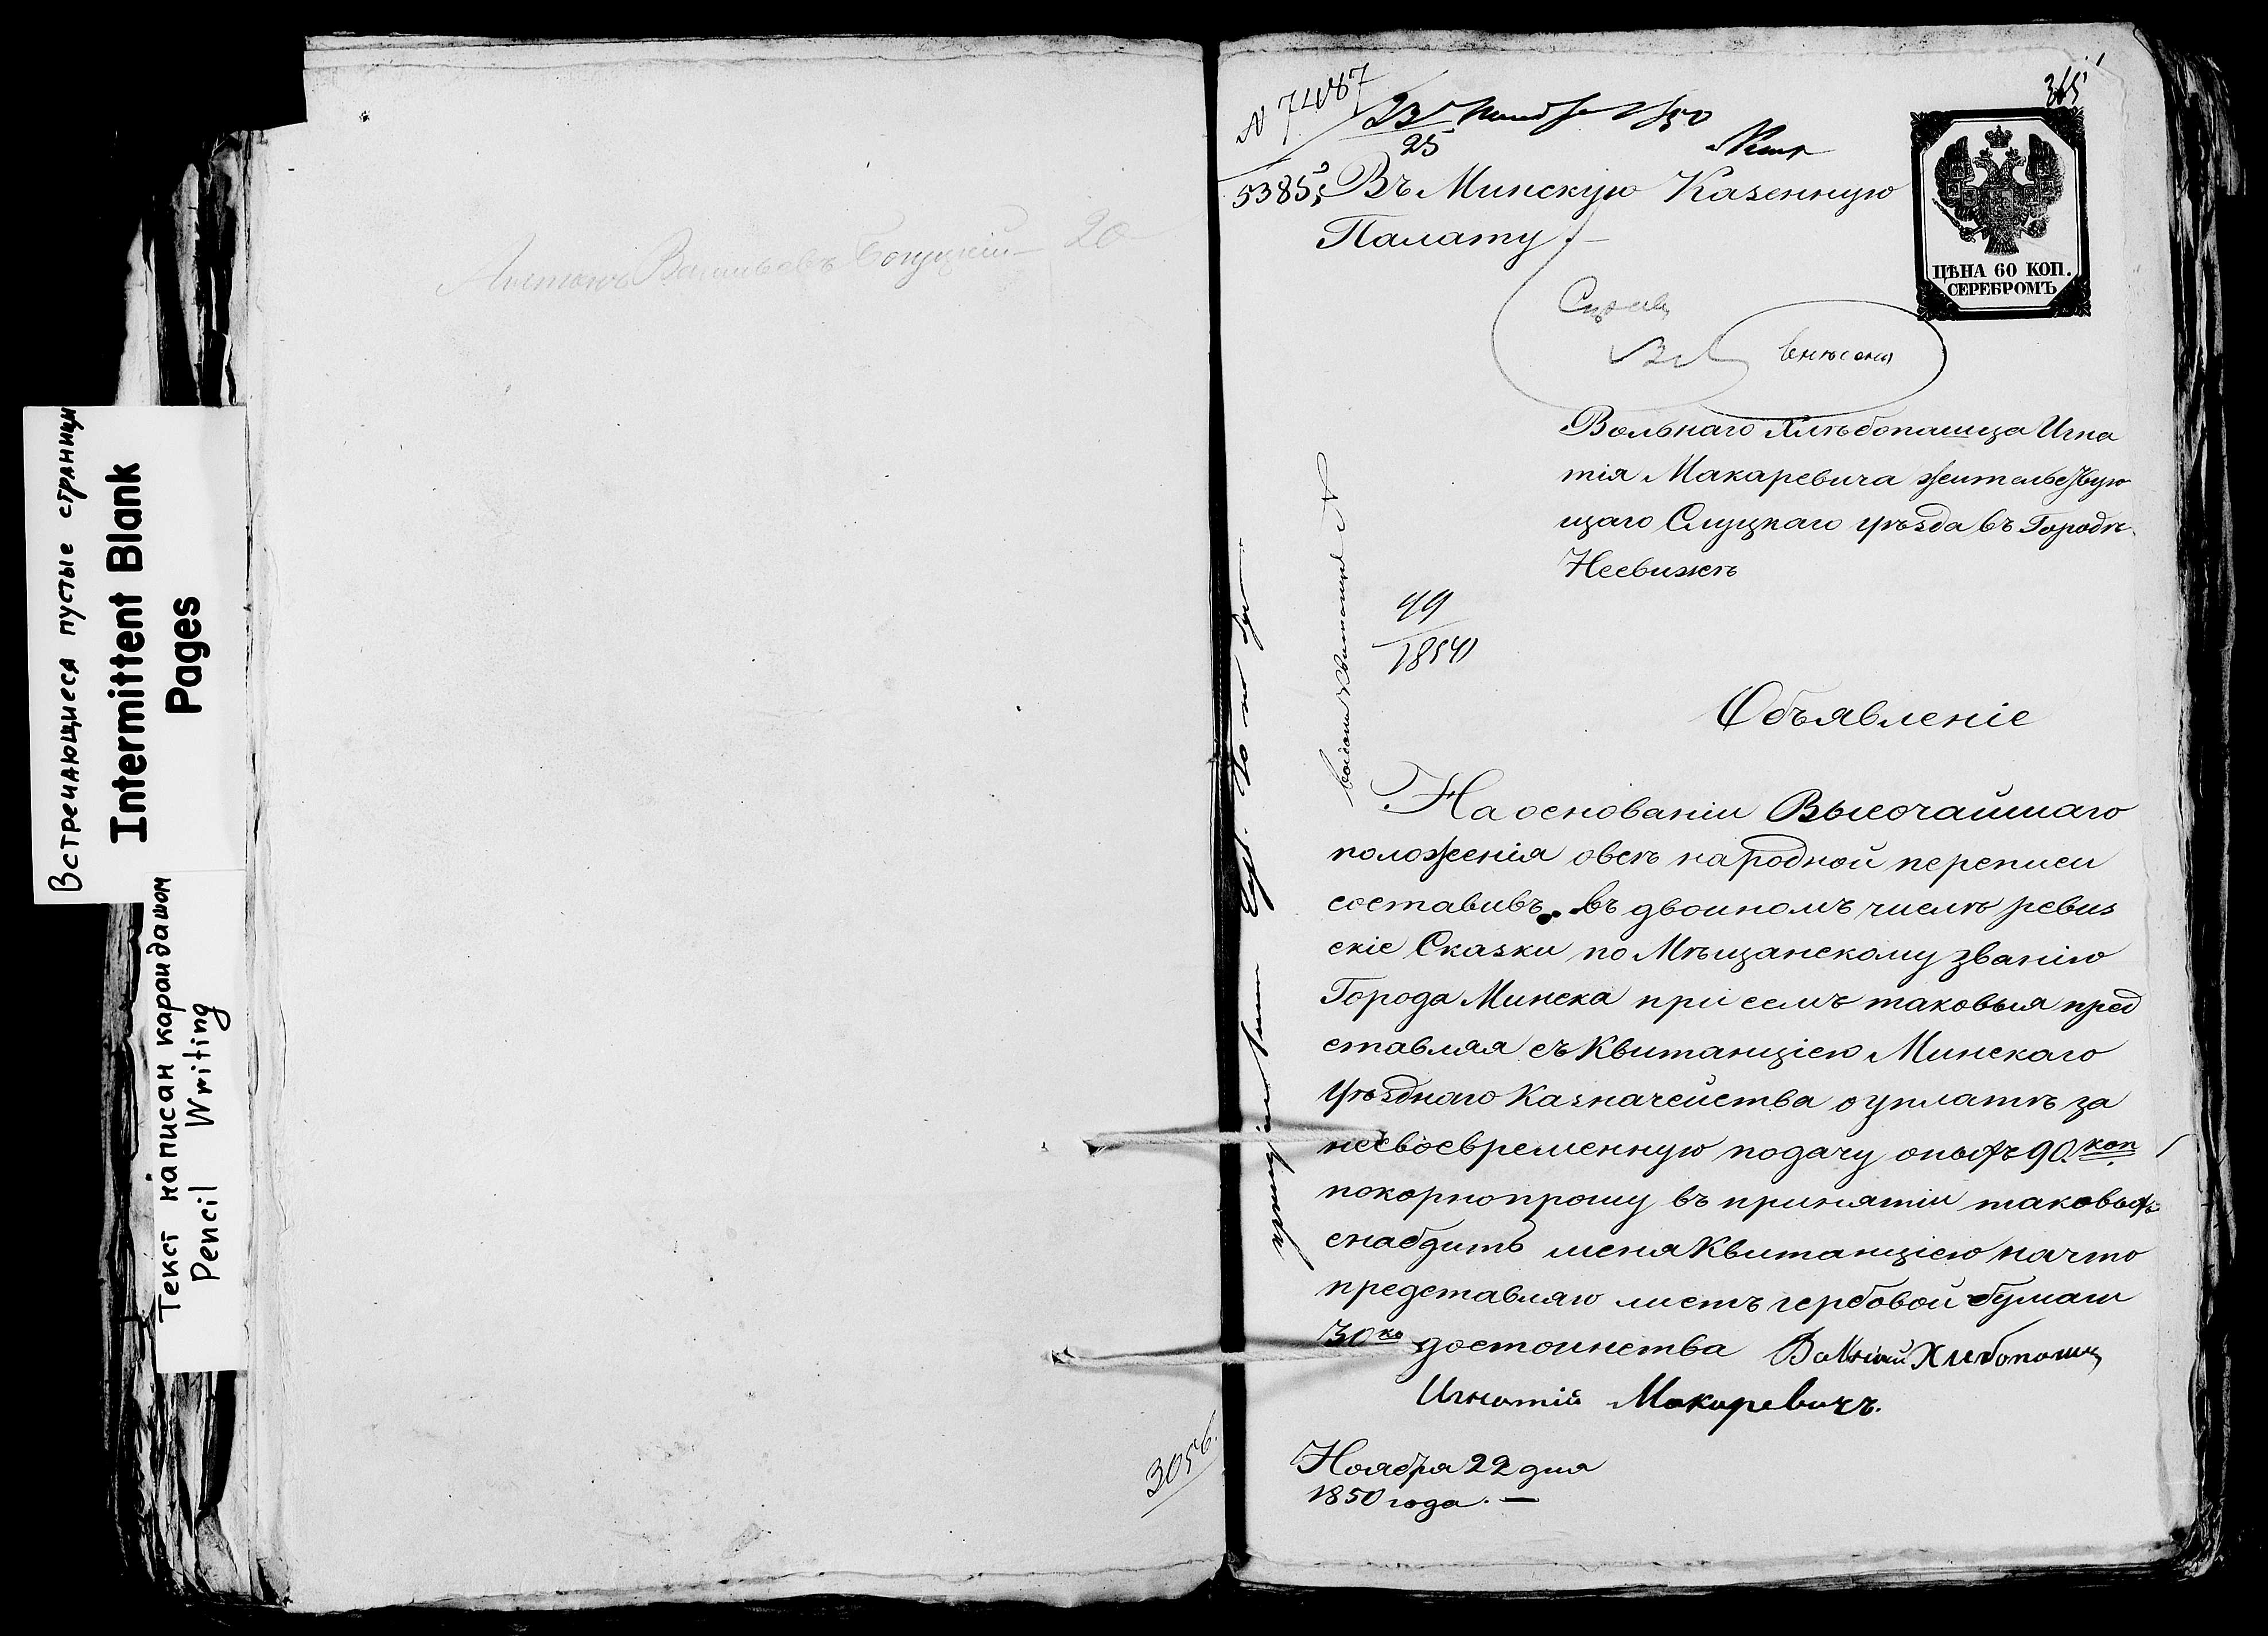 Встречающиеся пустые страницы
Intermittent Blank
Pages
Текст написан карандашом
Pencil Writing
20
3056.
N 7487
23 1850
25
365
53853
Въ Минскую Казенную
Палату
ЦѢНА 60 КОП.
СЕРЕБРОМЪ
внѣсены
Вольнаго Хлѣбопашца Игна
тія Макаревича жительствую
щаго Слуцкаго уѣзда въ Городѣ
Несвижѣ
Объявленіе
На основаніи Высочайшаго
положенія овсѣ народной переписи
составивъ въ двоиномъ числѣ ревиз
скіе Сказки по Мѣщанскому званію
Города Минска при семъ таковыя пред
ставляя съ Квитанціею Минскаго
Уѣзднаго Казначейства о уплатѣ за
несвоевременную подачу оныхъ 90. коп
покорно прошу въ принятіи таковыхъ
снабдить меня Квитанціею начто
представляю листъ гербовой бумаги
30 ко достоинства Волний Хлибопашц
Игнатій Макаревичъ.
Ноября 22 дня
1850 года. —